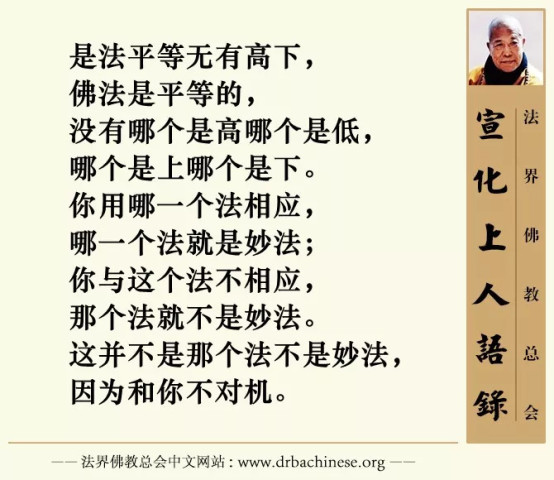 是法平等无有高下，
佛法是平等的，
没有哪个是高哪个是低，
哪个是上哪个是下。
你用哪一个法相应，
哪一个法就是妙法；
你与这个法不相应，
那个法就不是妙法。
这并不是那个法不是妙法，
因为和你不对机。
宣化上人語錄
法界佛教总会
—— 法界佛教总会中文网站：www.drbachinese.org ——